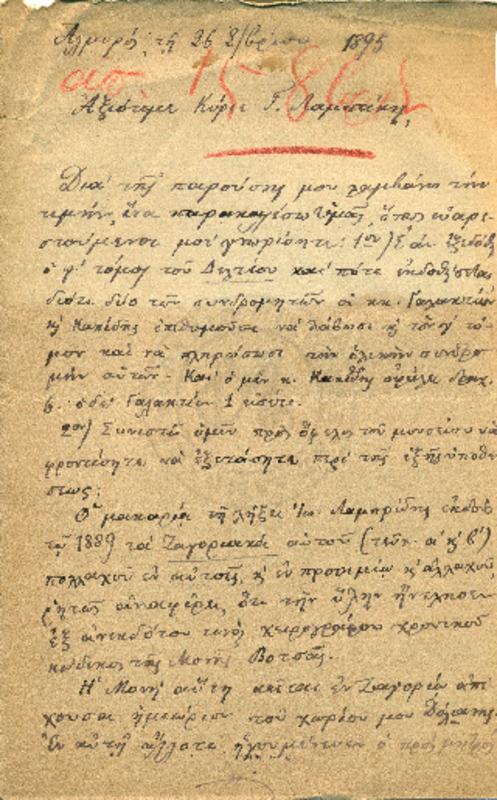 Ἁλμυρός, τῇ 26 8/βρίου 1895
απ. 15 8
Ἀξιότιμε Κύριε Γ. Λαμπάκη,
Διὰ τῆς παρούσης μου λαμβάνω τὴν
τιμὴν, ἵνα παρακαλέσω Ὑμᾶς, ὅπως εὐαρε-
στούμενοι μοὶ γνωρίσητε: 1ον) Ἐὰν ἐξεδόθη
ὁ τόμος τοῦ Δελτίου καὶ πότε ἐκδοθήσεται
διότι δύο τῶν συνδρομητῶν οἱ κκ. Γαλακτίων
κ Καπέδης ἐπιθυμοῦσι νὰ λάβωσι κ τὸν τό-
μον καὶ νὰ πληρώσωσι τὴν ὁλικὴν συνδρο-
μὴν αὐτῶν. Καὶ ὁ μὲν κ. Καπέδης ὀφείλει δραχ.
6. ὁ δὲ Γαλακτίων 1
2ον) Συνιστῶ ὑμῖν πρὸς ὄφελος τοῦ μουσείου νὰ
φροντίσητε νὰ ἐξετάσητε περὶ τῆς ἑξῆς ὑποθέ-
σεως:
Ὁ μακαρίᾳ τῇ λήξει Ἰω. Λαμπρίδης ἐκδοὺς
τῷ 1889 τὰ Ζαγοριακὰ αὐτοῦ (τεῦχ. α' κ β')
πολλαχοῦ ἐν αὐτοῖς, κ ἐν προοιμίῳ κ ἀλλαχοῦ
ῥητῶς ἀναφέρει, ὅτι τὴν ὕλην ἤντλησεν
ἐξ ἀνεκδότου τινὸς χειρογράφου χρονικοῦ
κώδικος τῆς Μονῆς Βοτσᾶς.
Ἡ Μονὴ αὕτη κεῖται ἐν Ζαγορίῳ ἀπέ-
χουσα ἡμιώριον τοῦ χωρίου μου
Ἐν αὐτῇ ἄλλοτε ἡγουμένευεν ὁ πρὸς μητρὸς